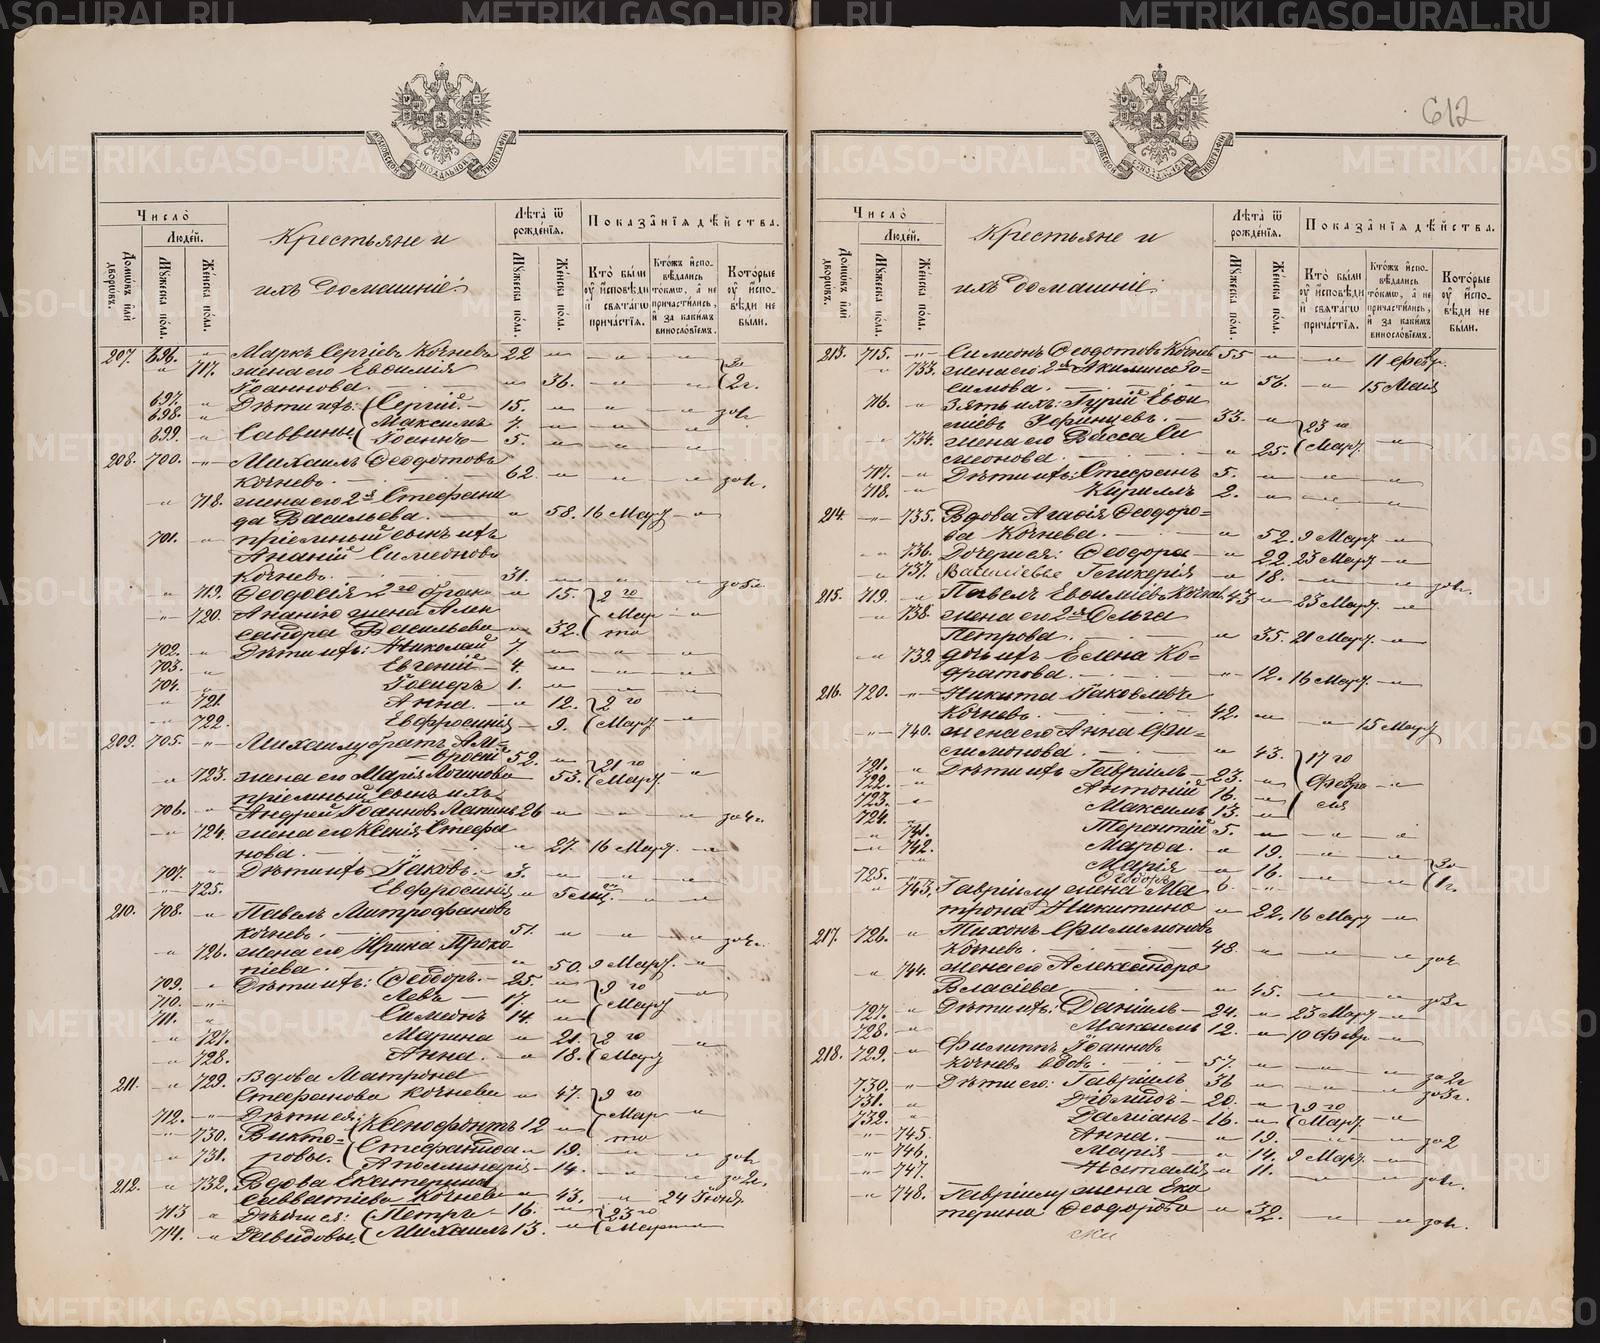 METRIKI.GASO-URAL.RU
612
МОСКОВСКОЙ СѴНОДАЛЬНОЙ ТИПОГРАФІИ
Число̀
Людей.
Домѡвъ илѝ дворѡвъ.
Мꙋжеска пола.
Женска пола.
Крестьяне и
ихъ домашніе:
Лѣта̀ ѿ рождéнїѧ.
Мꙋжеска пола.
Женска пола.
Показанїѧ дѣйства.
Кто̀ были ᲂу҆ исповѣди и свѧтагѡ причастїѧ.
Ктожъ исповѣдались токмѡ, а не причастились, и за какимъ винословїемъ.
Которые ᲂу҆ исповѣди не были.
207. 696. " Маркъ Сергіевъ Кочневъ 22 " " "
" 717. жена его Евѳимія
Іоаннова. " 36. " " 2 г.
697. " Дѣти ихъ: Сергій. 15. " " " за н.
698. " Саввины Максимъ 7. " " "
699. " Іоаннъ 5. " " "
208. 700. " Михаилъ Ѳеодотовъ
Кочневъ. 62. " " " за н.
" 718. жена его 2я Стефани
да Васильева. " 58. 16 Март "
701. " пріемный сынъ ихъ
Ананій Симеоновъ
Кочневъ. 31. " " "
" 719. Ѳеодосія 2го брака " 15. 2 го
" 720. Ананію жена Алек
сандра Васильева " 32. Марта "
702. " Дѣти ихъ: Николай 7. " " "
703. " Евгеній 4. " " "
704. " 1. " " "
" 721. Анна. " 12. 2 го
" 722. Евфросинія " 9. Март "
209. 705. " Михаилу братъ Ам-
вросій 52. " 21 го
" 723. жена его Марія Логинова 53. Март "
пріемный сынъ ихъ
706. " Андрей Іоанновъ 26 " " " за 4 г.
" 724. жена его Ксенія Стефа
нова. " 27. 16 Март "
707. " Дѣти ихъ Іаковъ. 3. " " "
" 725. Евфросинія " 5 мѣс. " "
210. 708. " Павелъ Митрофановъ
Кочневъ. 51. " " "
" 726. жена его Ирина Проко
піева. " 50. 9 Март "
709. " Дѣти ихъ: Ѳеодоръ. 25. " 9 го
710. " Левъ 17. " Март "
711. " Симеонъ 14. "
" 727. Марина " 21. 2 го
" 728. Анна. " 18. Март "
211. " 729. Вдова Матрона
Стефанова Кочнева " 47. 9 го
712. " Дѣти ея: Ксенофонтъ 12 " Мар "
" 730. Викто- Стефанида " 19. та
" 731. ровы. Аполлинарія 14. " " за н.
212. " 732. Вдова Екатерина
Савватіева Кочнева " 43. " 24 Іюня
713 " Дѣти ея: Петръ 16. " 23 го
714. " Давидовы. Михаилъ 13. " Марта
Число̀
Людей.
Домѡвъ илѝ дворѡвъ.
Мꙋжеска пола.
Женска пола.
Крестьяне и
ихъ домашніе:
Лѣта̀ ѿ рождéнїѧ.
Мꙋжеска пола.
Женска пола.
Показанїѧ дѣйства.
Кто̀ были ᲂу҆ исповѣди и свѧтагѡ причастїѧ.
Ктожъ исповѣдались токмѡ, а не причастились, и за какимъ винословїемъ.
Которые ᲂу҆ исповѣди не были.
213. 715. " Симеонъ Ѳеодотовъ Кочнев 55 " " 11 Февр.
" 733. жена его 2я Акилина Зо-
симова. " 56. " 15 Мая
716. " Зять ихъ: Гурій Евѳи
міевъ 33. " 23 го
" 734. жена его Васса Си
меонова. " 25. Март "
717. " Дѣти ихъ: Стефанъ 5. " " "
718. " Кириллъ 2. " " "
214. " 735. Вдова Агафія Ѳеодоро-
ва Кочнева. " 52. 9 Март "
" 736. Дочери ея: Ѳеодора " 22. 23 Март "
" 737. Гликерія " 18. " " за н.
215. 719. " Павелъ Евѳиміевъ Кочнев 43 " 23 Март "
" 738. жена его 2я Ольга
Петрова. " 35. 21 Март "
" 739. дочь ихъ Елена Ко-
дратова. " 12. 16 Март "
216. 720. " Никита Іаковлевъ
Кочневъ. 42. " " 15 Март
" 740. жена его Анна Фи-
лимонова. " 43. 17 го
721. " Дѣти ихъ Гавріилъ 23. " Февра "
722. " Антоній 16. " ля
723. " Максимъ 13. "
724. " Терентій 5. " " "
" 741. Марѳа. " 19. " "
" 742. Марія " 16. " " 1 г.
725. " Ѳеодоръ 6. "
" 743. Гавріилу жена Ма
трона Никитина " 22. 16 Март "
217. 726. " Тихонъ Филимоновъ
Кочневъ. 48. " " "
" 744. жена его Александра
Власіева " 45. " " за 3 г.
727. " Дѣти ихъ: Даніилъ 24. " 23 Март "
728. " Максимъ 12. " 10 Февр "
218. 729. " Филиппъ Іоанновъ
Кочневъ вдовъ. 57. " " " за 2 г
730. " Дѣти его: Гавріилъ 36 " " " за 3 г.
731. " Діомидъ 20. " 9 го
732. " Даміанъ 16. " Март "
" 745. Анна. " 19. " " за 2
" 746. Марія " 14. 9 Март "
" 747. Наталія " 11. " " за н.
" 748. Гавріилу жена Ека
терина Ѳеодорова " 32. " " за н.